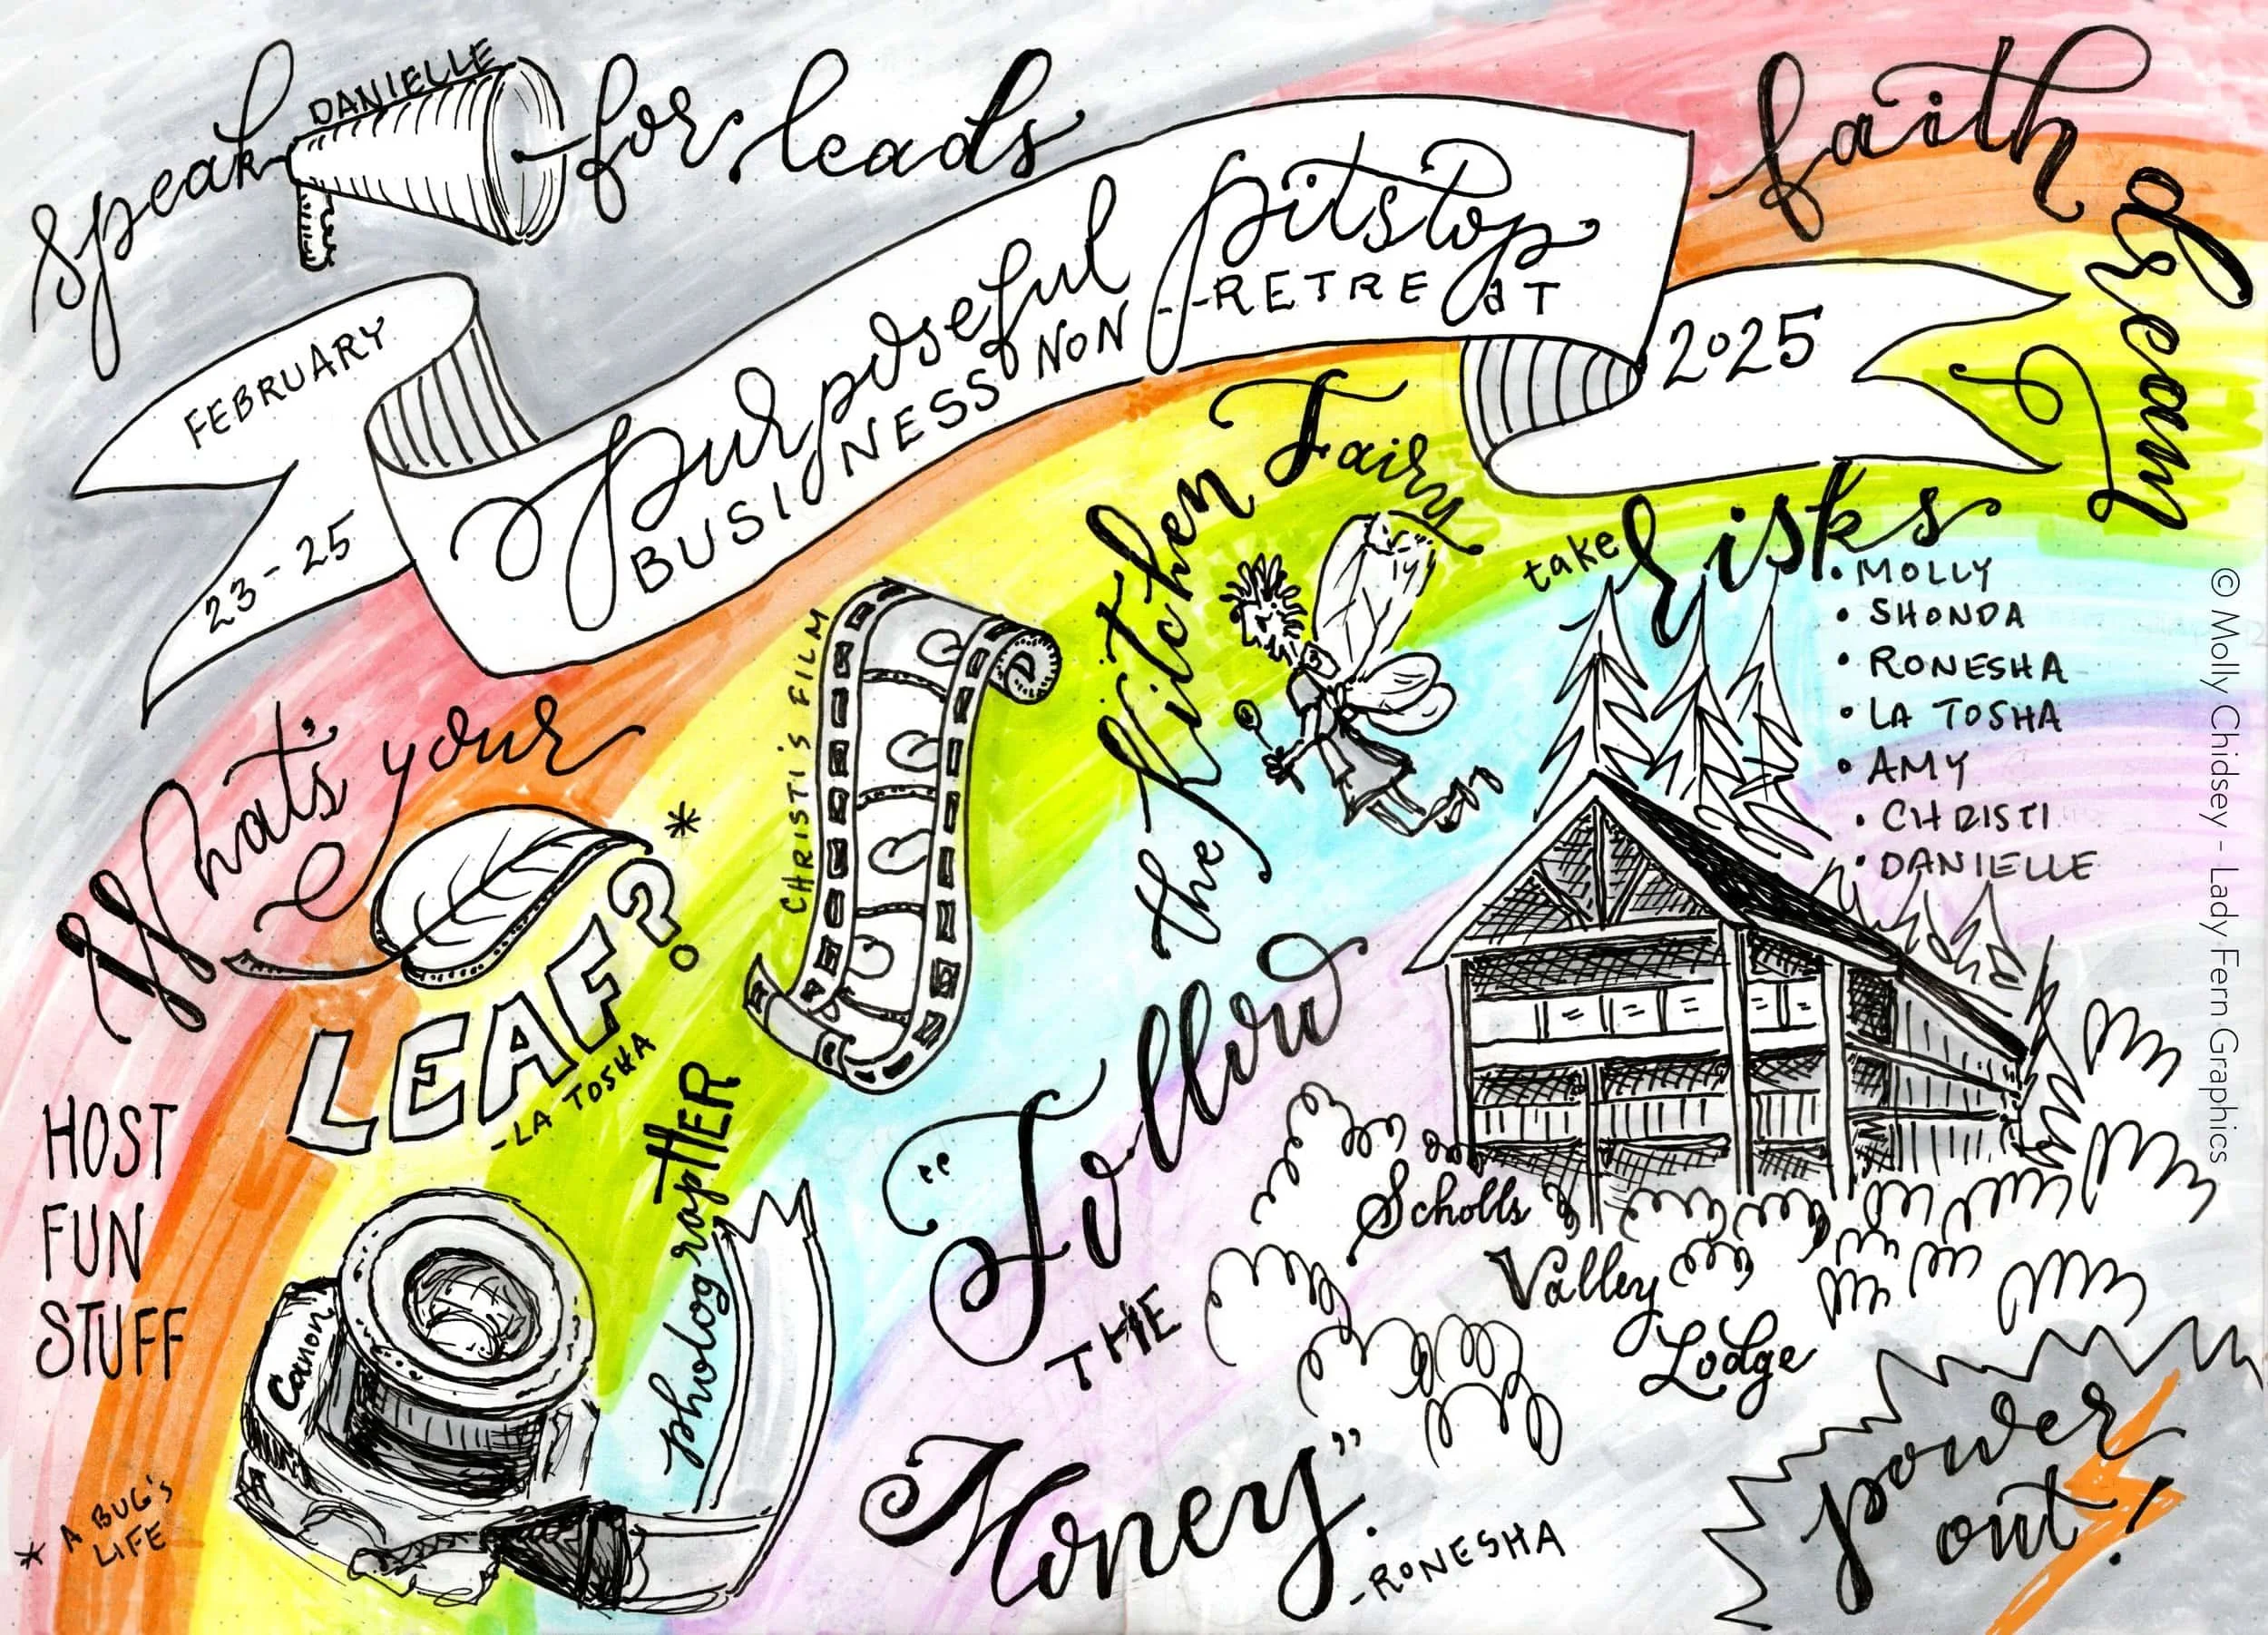 speak for leads
DANIELLE
faith
dream
FEBRUARY
23-25
purposeful pitstop
BUSINESS NON--RETREAT
2025
the Kitchen Fairy
take risks
• MOLLY
• SHONDA
• RONESHA
• LA TOSHA
• AMY
• CHRISTI
• DANIELLE
What's your
LEAF?*
-LA TOSHA
CHRISTI'S FILM
HOST
FUN
STUFF
photograpHER
Canon
* A BUG'S
LIFE
"Follow
THE
Money"
-RONESHA
Scholls
Valley
Lodge
power
out!
© Molly Chidsey - Lady Fern Graphics